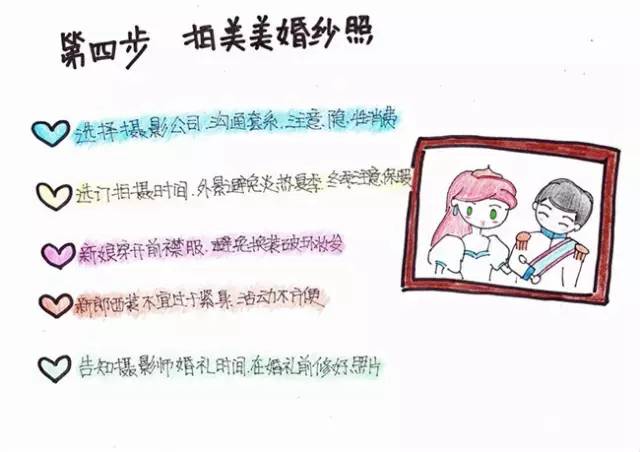 第四步 拍美美婚纱照
选择摄影公司.沟通套系.注意隐性消费
选订拍摄时间.外景避免炎热夏季.冬季注意保暖
新娘穿开前襟服.避免换装破坏妆发
新郎西装不宜过于紧具.活动不方便
告知摄影师婚礼时间.在婚礼前修好照片